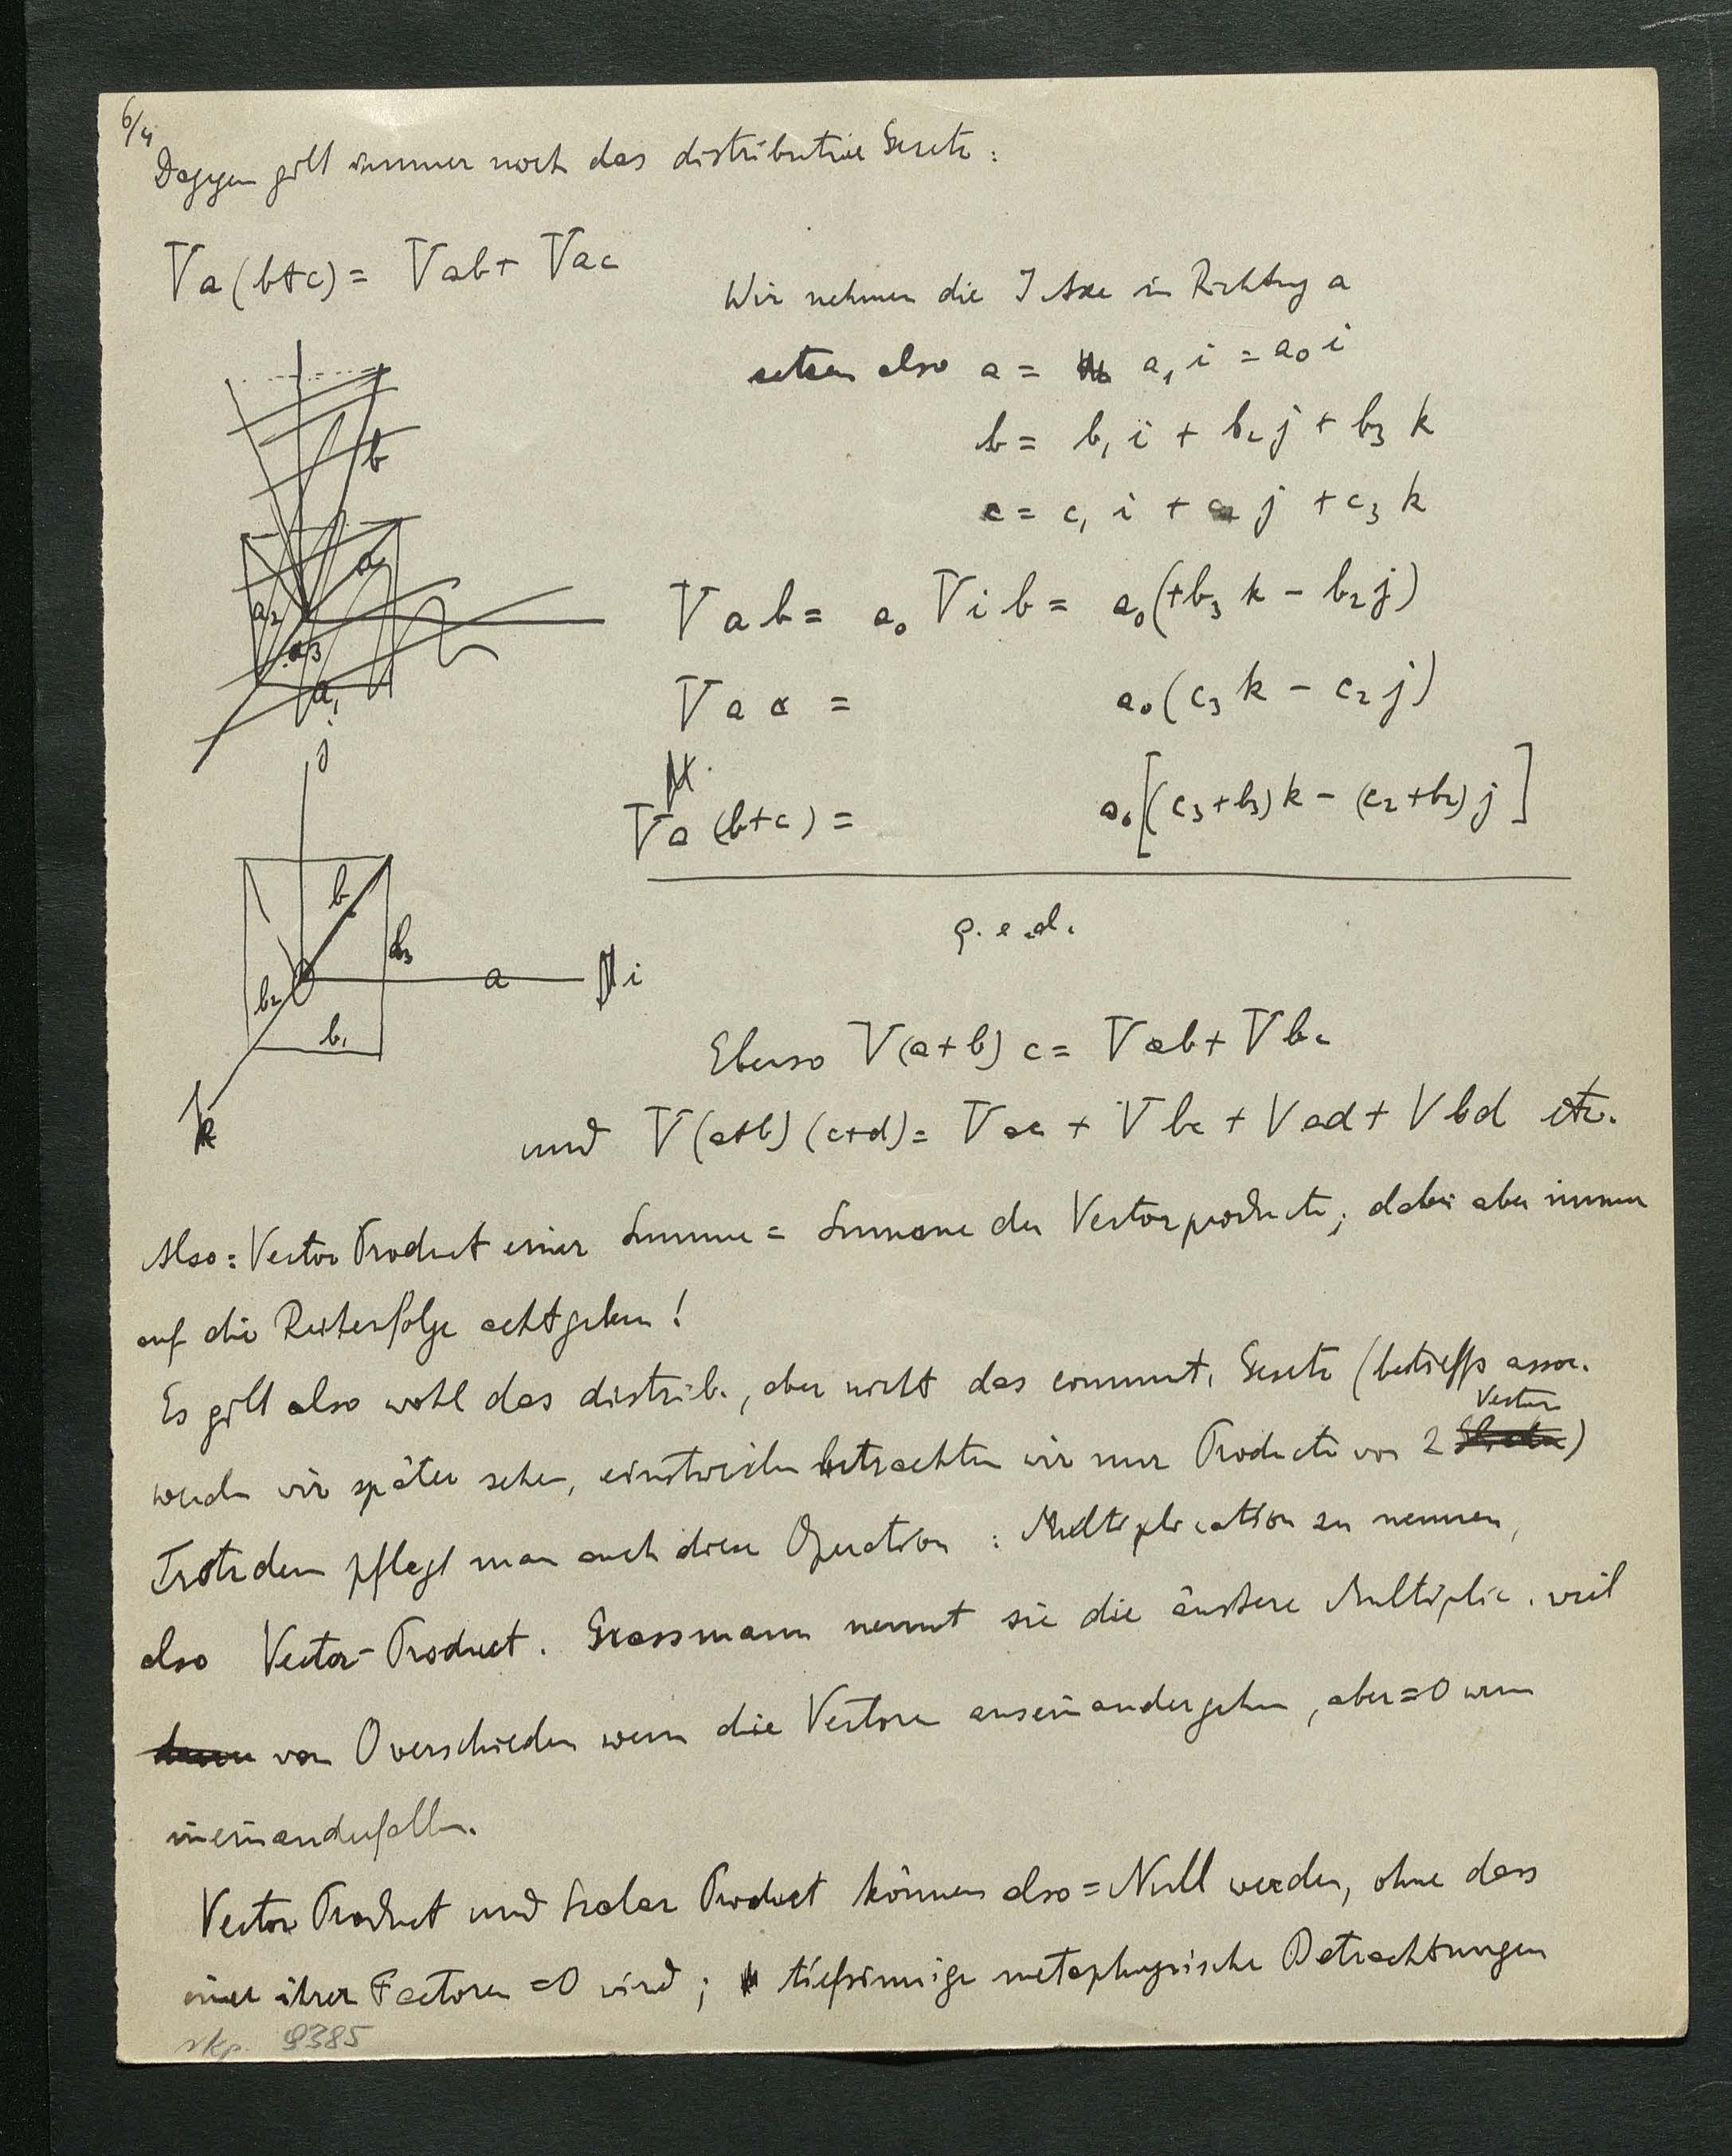 6/4
Dagegen gilt immer noch das distributive Gesetz:
Va(b+c) = Vab + Vac
Wir nehmen die I Axe in Richtung a
setzen also a = a₁ i = a₀ i
b = b₁ i + b₂ j + b₃ k
c = c₁ i + c₂ j + c₃ k
b
a
a₂
a₃
a₁
Vab = a₀ Vib = a₀(+b₃ k − b₂ j)
Vac = a₀(c₃ k − c₂ j)
Va(b+c) = a₀[(c₃+b₃)k − (c₂+b₂)j]
q.e.d.
j
b
b₃
b₂
b₁
a
i
k
Ebenso V(a+b)c = Vab + Vbc
und V(a+b)(c+d) = Vac + Vbc + Vad + Vbd etc.
Also: Vector Product einer Summe = Summe der Vectorproducte; dabei aber immer
auf die Reihenfolge achtgeben!
Es gilt also wohl das distrib., aber nicht das commut. Gesetz (betreffs assoc.
werden wir später sehen, einstweilen betrachten wir nur Producte von 2 Vectoren)
Trotzdem pflegt man auch diese Operation: Multiplication zu nennen,
also Vector-Product. Grassmann nennt sie die äussere Multiplic. weil
von 0 verschieden wenn die Vectoren auseinandergehen, aber = 0 wenn
ineinanderfallen.
Vector Product und Scalar Product können also = Null werden, ohne dass
einer ihrer Factoren = 0 wird; tiefsinnige metaphysische Betrachtungen
rkp. 9385